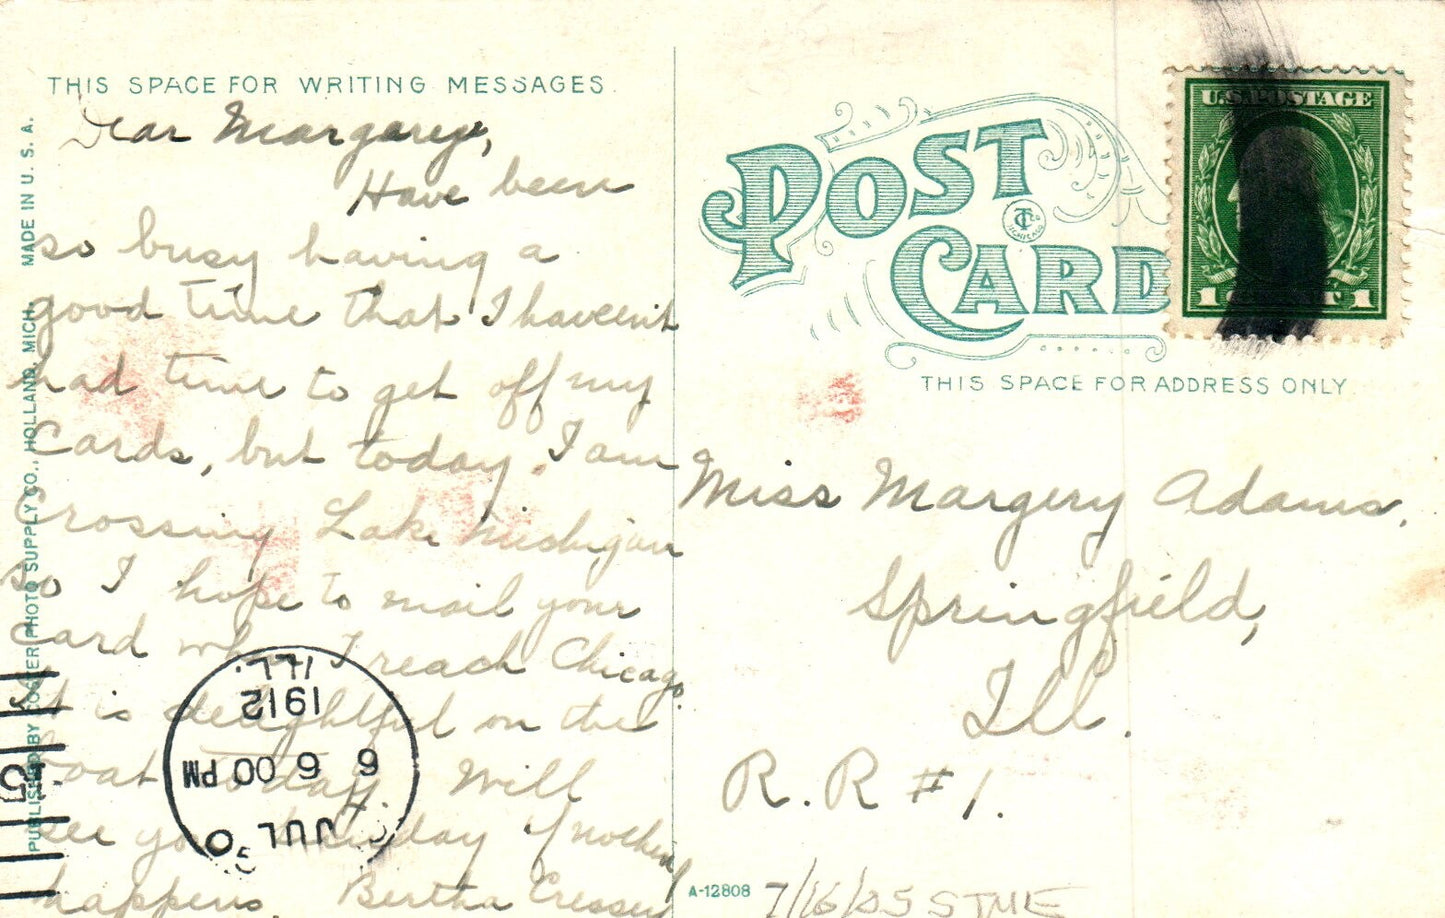 THIS SPACE FOR WRITING MESSAGES.
Dear Margery,
Have been
so busy having a
good time that I haven't
had time to get off my
Cards, but today I am
Crossing Lake Michigan
so I hope to mail your
card when I reach Chicago.
It is delightful on the
boat today. Will
see you Sunday if nothing
happens. Bertha Cressey
PUBLISHED BY COSTER PHOTO SUPPLY CO., HOLLAND, MICH. MADE IN U.S.A.
ILL.
1912
6 6 00 PM
JUL
5
POST
CARD
U.S. POSTAGE
1 CENT 1
THIS SPACE FOR ADDRESS ONLY
Miss Margery Adams.
Springfield,
Ill.
R.R #1.
A-12808
7/16/05 STME